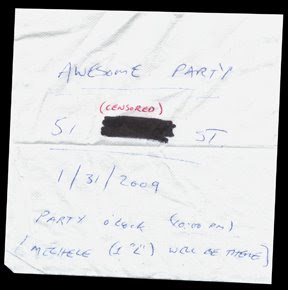 AWESOME PARTY
(CENSORED)
51 ST.
1/31/2009
PARTY O'CLOCK (10:00 PM)
[MECHELE (1 "L") WILL BE THERE]